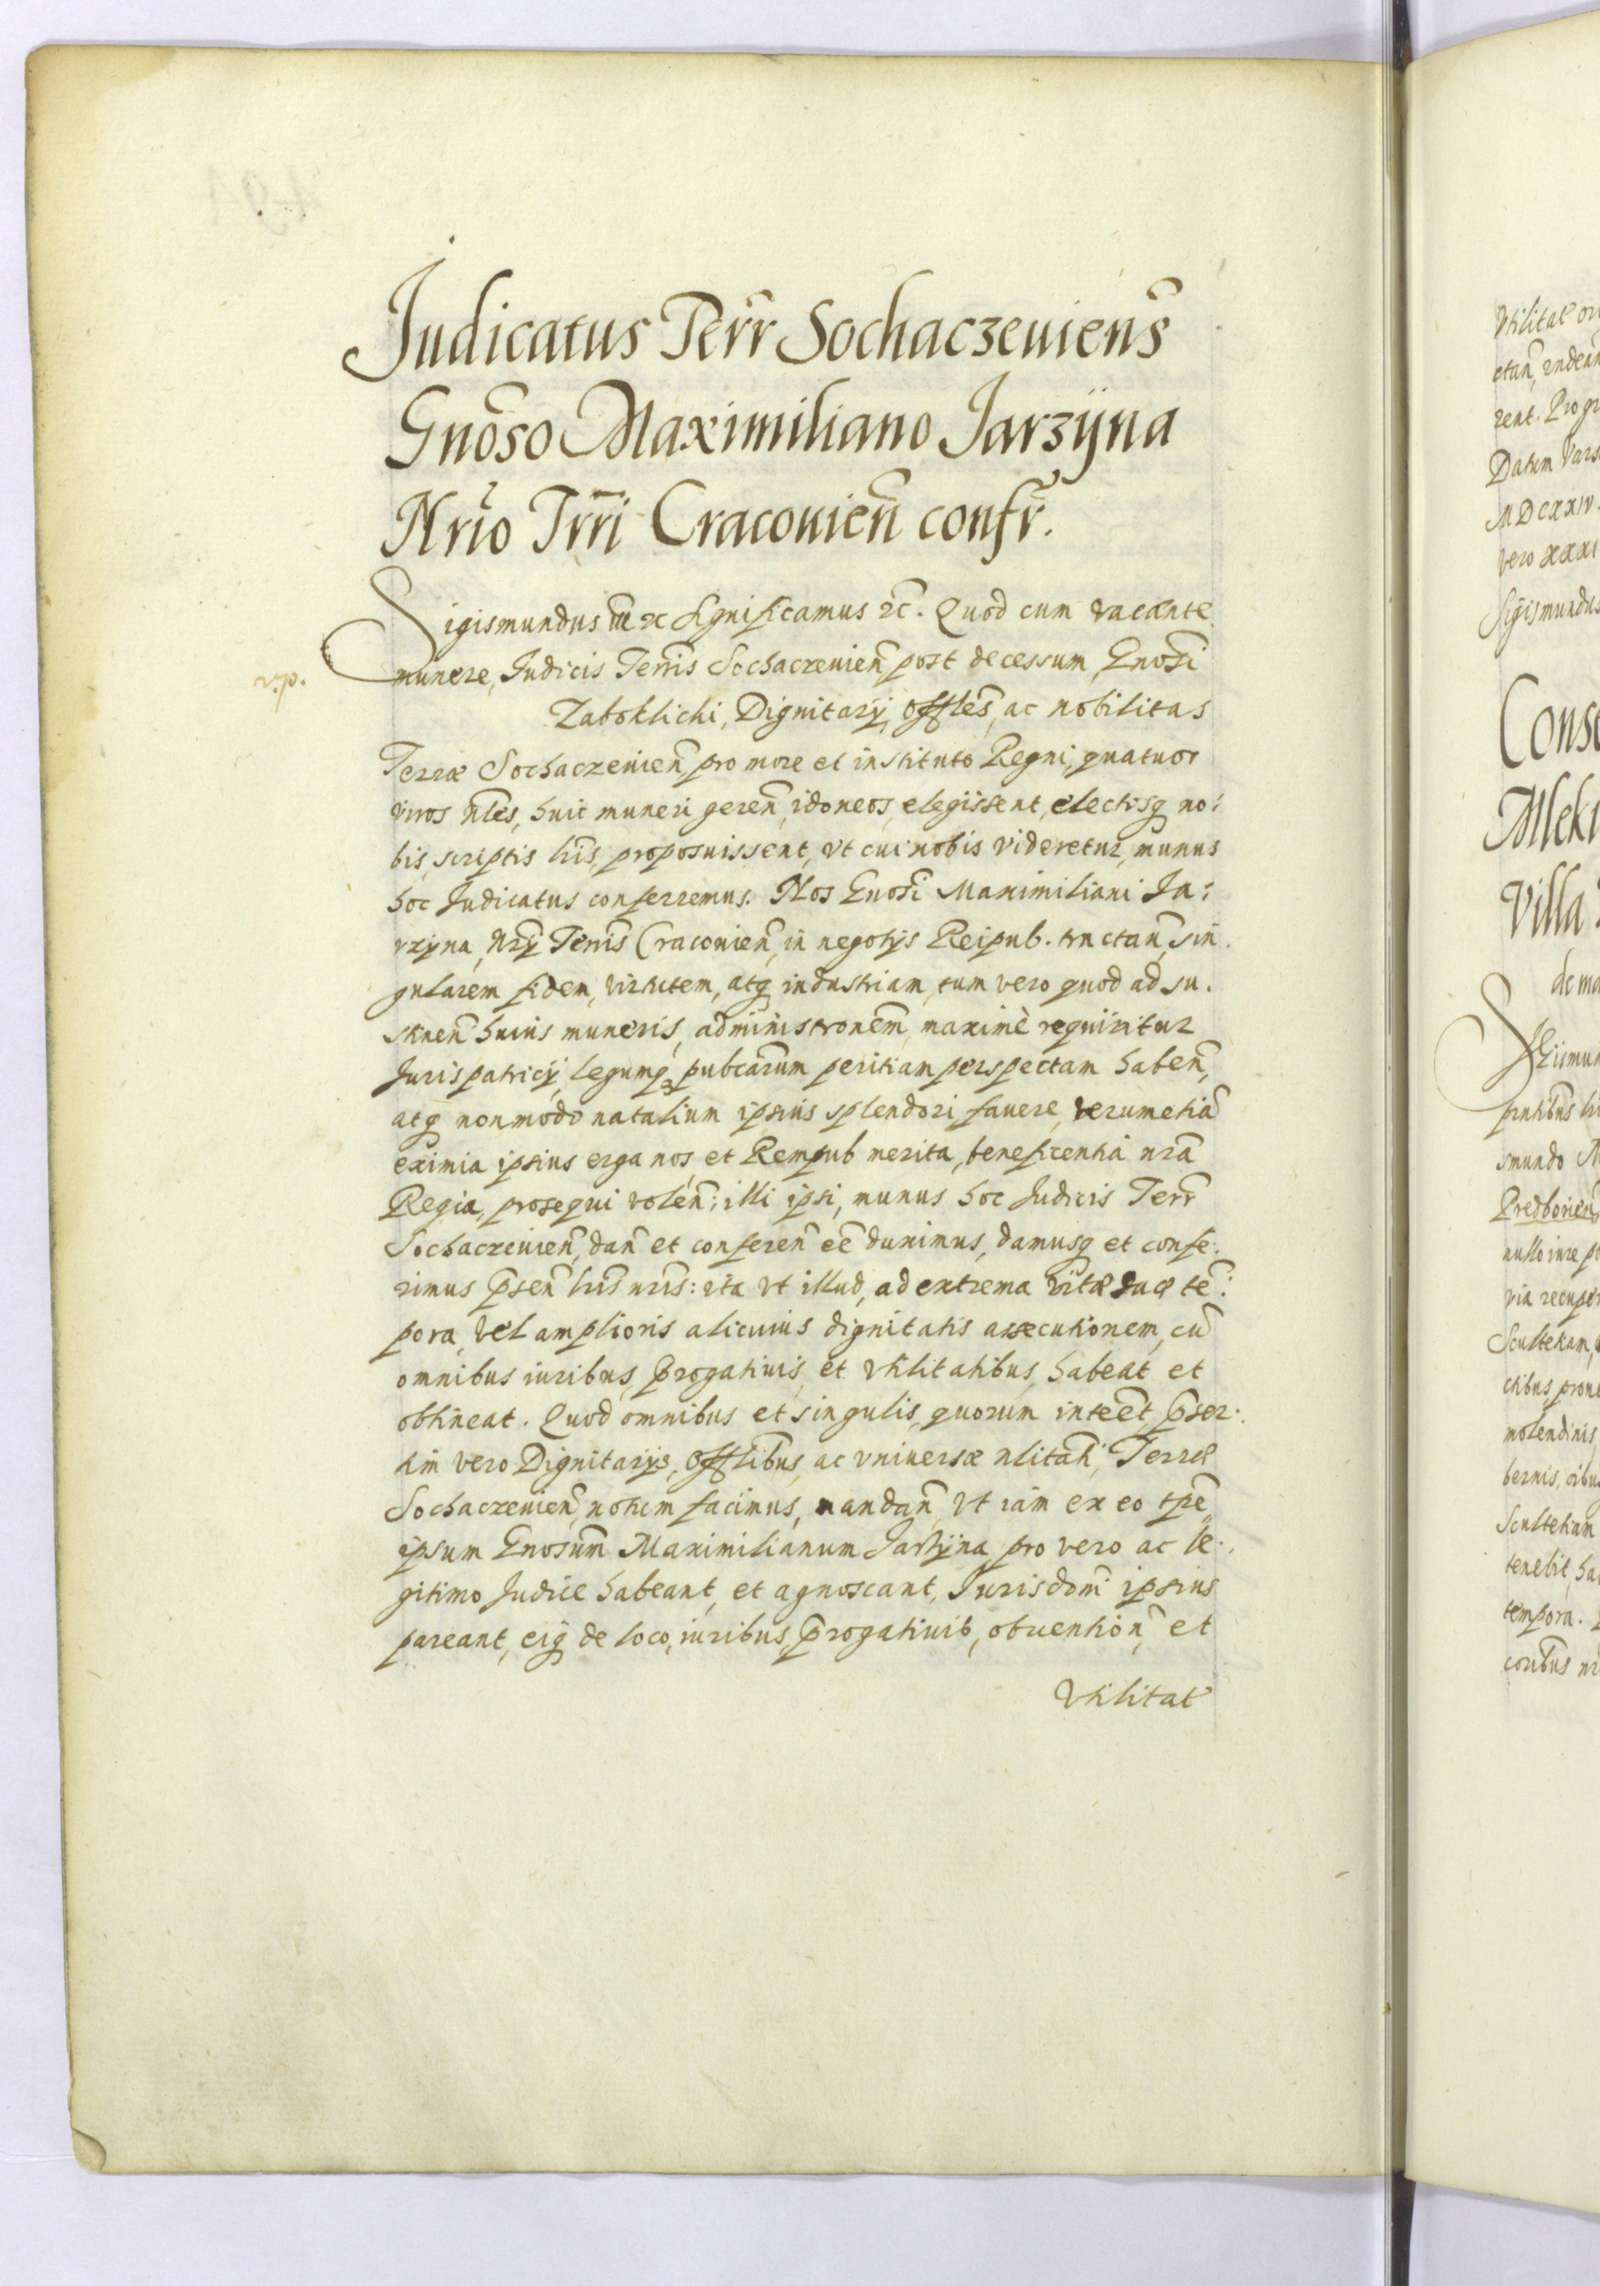 Judicatus Terr̃ Sochaczeuiens̃
Gnõso Maximiliano Jarzÿna
Nrĩo Trr̃i Craconien̄ confr̃.
Sigismundus III ꝛc significamus ꝛc̃. Quod cum vacante
munere, Judicis Terris̃ Sochaczeuien̄, post decessum, Gnosĩ
v.p.
Zaboklichi, Dignitarÿ, Offles̃, ac nobilitas
Terræ Sochaczeuien̄, pro more et instituto Regni, quatuor
viros nles̃, huic muneri geren̄, idoneos, elegissent, electisq no:
bis, scriptis lris̃, proposuissent, vt cui nobis videretur, munus
hoc Judicatus conferremus. Nos Gnosĩ Maximiliani Ja:
rzyna, Nrÿ̃ Terris̃ Craconien̄, in negotÿs Reipub. tractan̄, sin.
gularem fidem, virtutem, atq industriam, tum vero quod ad su.
stinen̄ huius muneris, administronem̃ maximè requiritur
Juris patricÿ, legumq pubcarum̃ peritiam perspectam haben̄,
atq non modo natalium ipsius splendori fauere, verumetiã
eximia ipsius erga nos, et Rempub merita, beneficentia nrã
Regia, prosequi volen̄: illi ipsi, munus hoc Judicis Terr̃
Sochaczeuien̄, dan̄ et conferen̄ eẽ duximus, damusq et confe:
rimus p̃sen̄ lris̃ nris̃: ita vt illud, ad extrema vitæ suæ tẽ:
pora, vel amplioris alicuius dignitatis assecutionem, cũ
omnibus iuribus, p̃rogatiuis, et vtilitatibus, habeat et
obtineat. Quod omnibus et singulis, quorum inteẽt, p̃ser:
tim vero Dignitarÿs, Offlibus̃, ac vniuersæ nlitati̇̃, Terræ
Sochaczeuien̄, notum facimus, mandan̄, vt iam ex eo tpẽ
ipsum Gnosum̃ Maximilianum Jarzÿna, pro vero ac le:
gitimo Judice habeant, et agnoscant, Jurisdom̃ ipsius
pareant, eiq de loco, iuribus, p̃rogatiuis, obuention̄, et
Vtilitat
Sigismundus
Villa
de ma
smundo M
molendinis,
tempora.